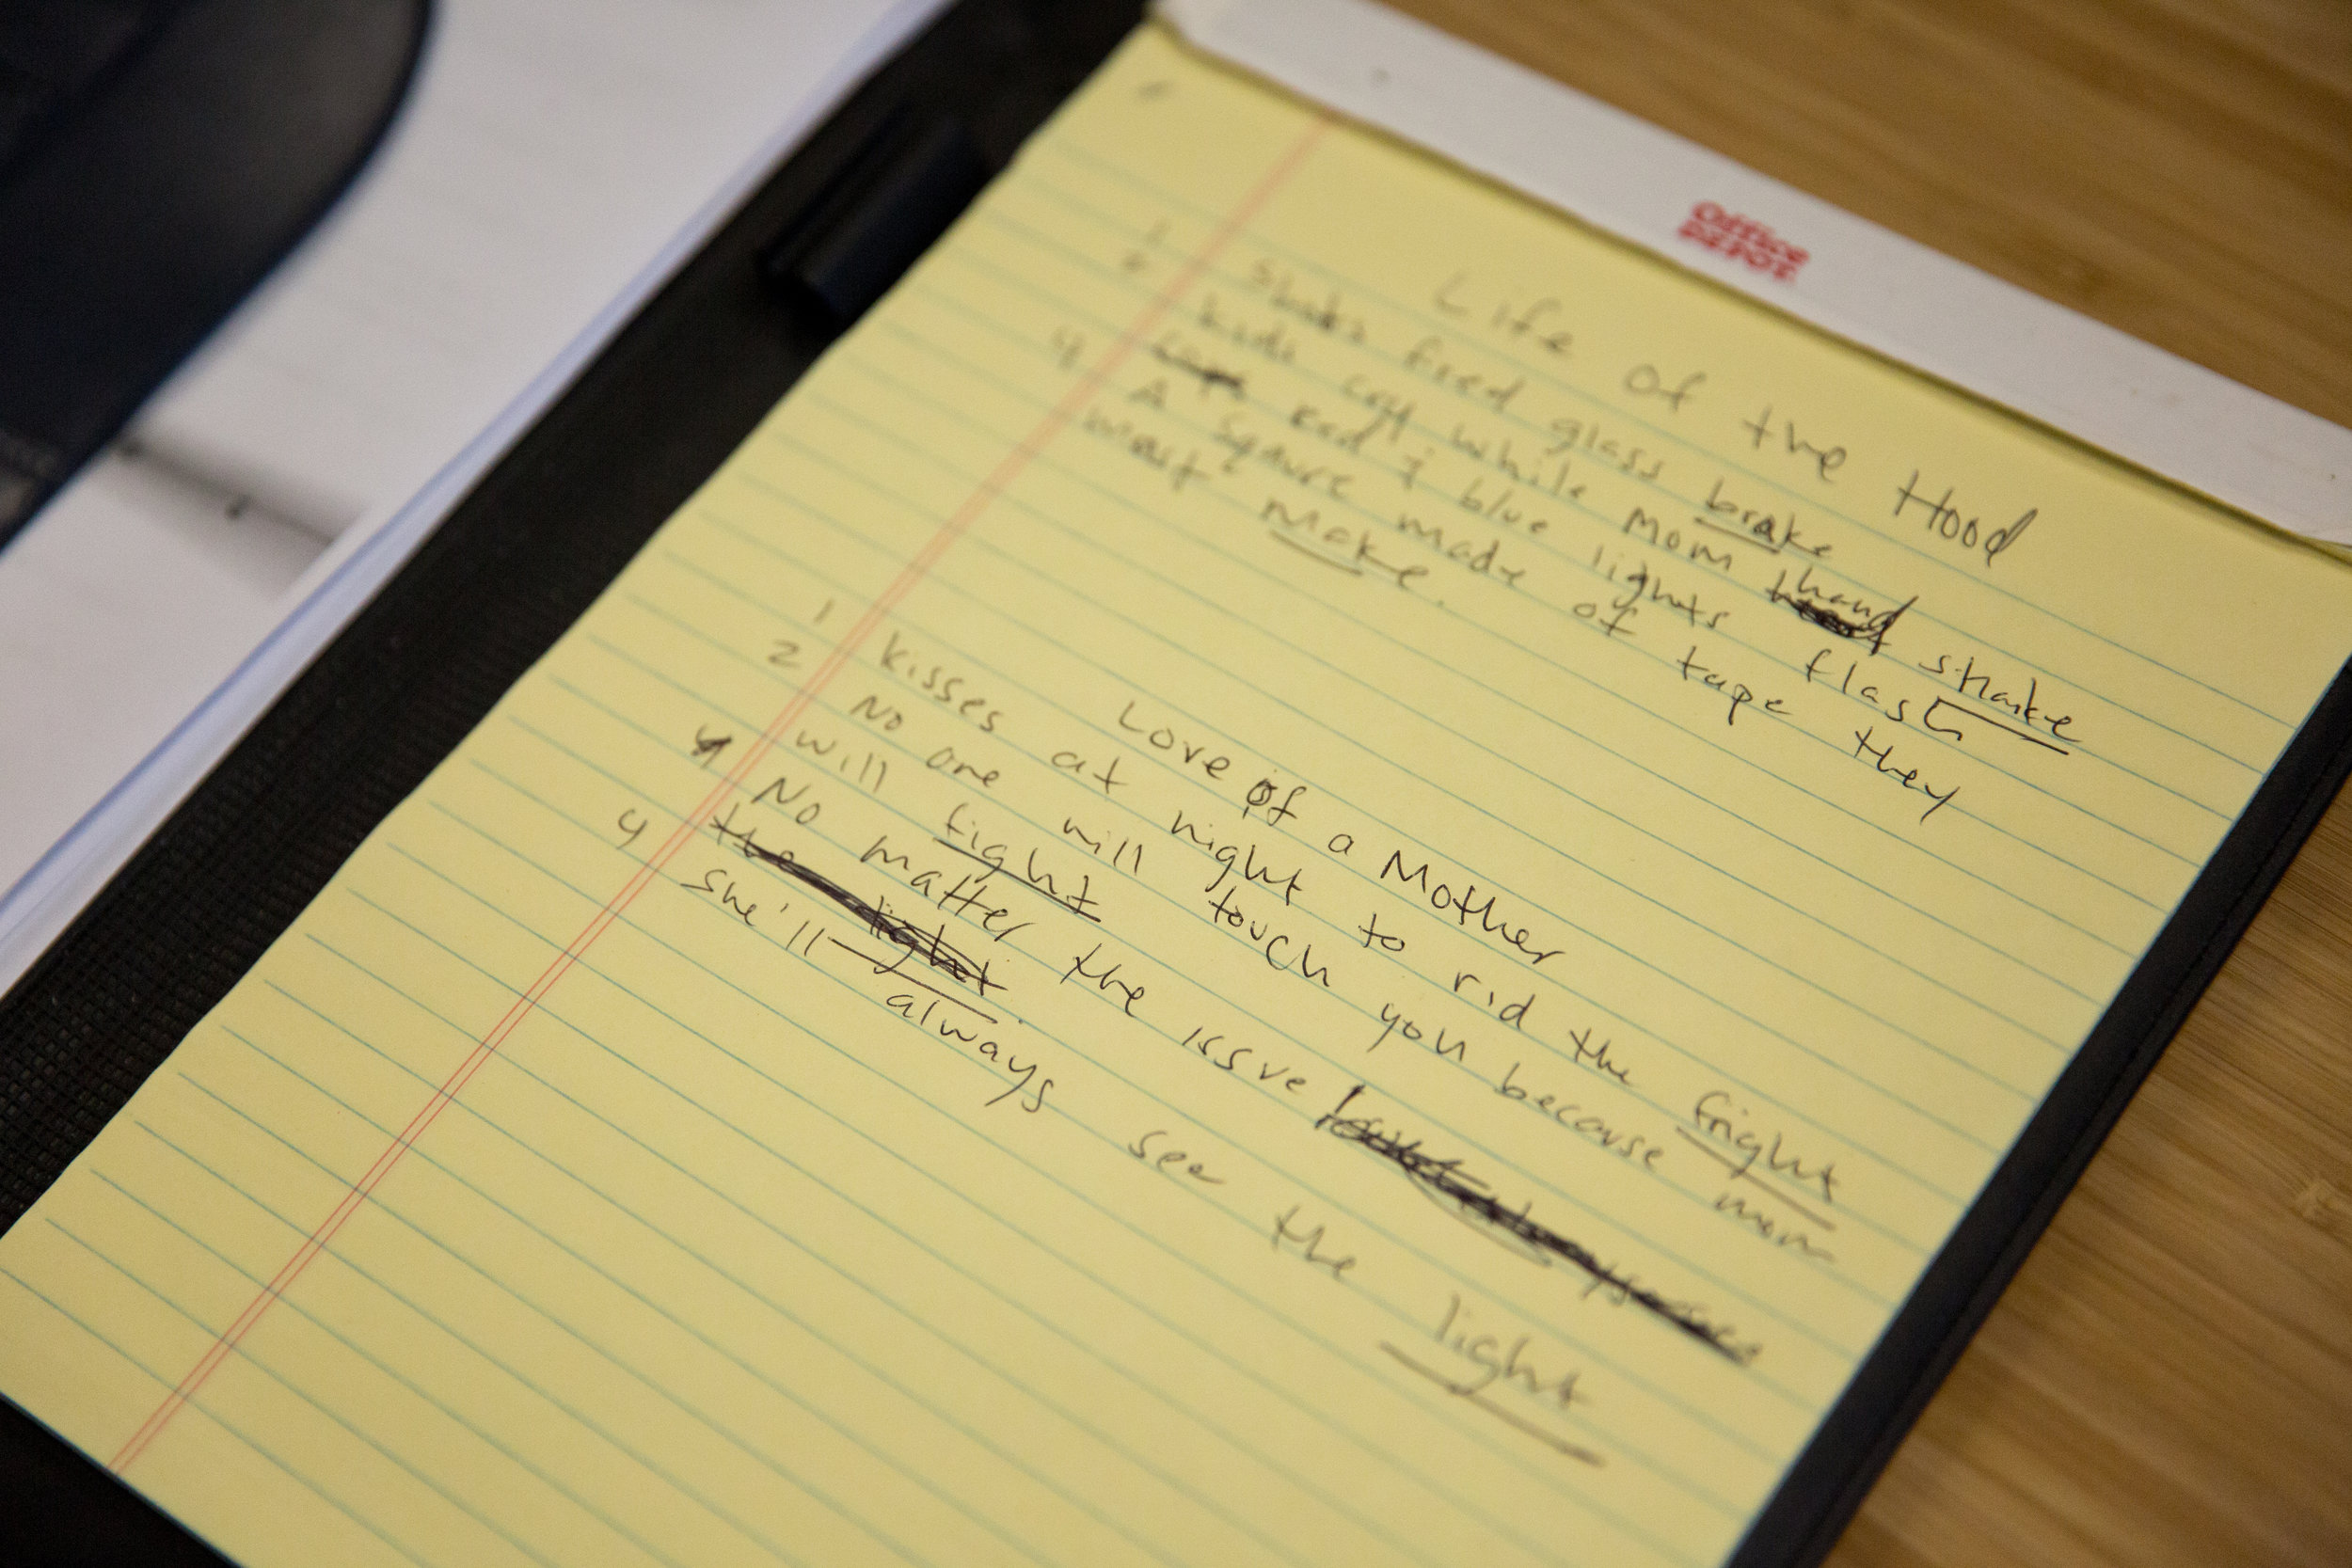 Office
DEPOT
Life of the Hood
1 Shots fired glass brake
2 kids cry while mom hand shake
Red & blue lights flash
4 A square made of tape they
Make.
Love of a Mother
1 kisses at night to rid the fright
2 No one will touch you because mom
will fight
4 No matter the issue
the light
4 she'll always see the light